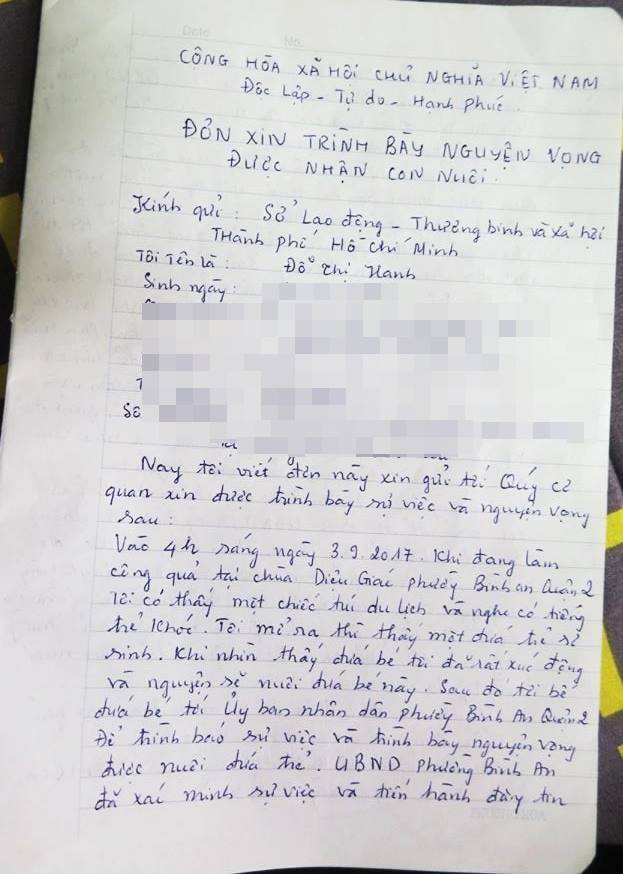 Date No.
CỘNG HÒA XÃ HỘI CHỦ NGHĨA VIỆT NAM
Độc Lập - Tự do - Hạnh phúc.
ĐƠN XIN TRÌNH BÀY NGUYỆN VỌNG
ĐƯỢC NHẬN CON NUÔI.
Kính gửi: Sở Lao động - Thương binh và xã hội
Thành phố Hồ Chí Minh
Tôi tên là: Đỗ Thị Hạnh
Sinh ngày:
T
Số
Nay tôi viết đơn này xin gửi tới Quý cơ
quan xin được trình bày sự việc và nguyện vọng
sau:
Vào 4h sáng ngày 3.9.2017. Khi đang làm
công quả tại chùa Diệu Giác phường Bình an Quận 2
Tôi có thấy một chiếc túi du lịch và nghe có tiếng
trẻ khóc. Tôi mở ra thì thấy một đứa trẻ sơ
sinh. Khi nhìn thấy đứa bé tôi đã rất xúc động
và nguyện sẽ nuôi đứa bé này. Sau đó tôi bế
đứa bé tới Ủy ban nhân dân phường Bình An Quận 2
Để trình báo sự việc và trình bày nguyện vọng
được nuôi đứa trẻ. UBND Phường Bình An
đã xác minh sự việc và tiến hành đăng tin